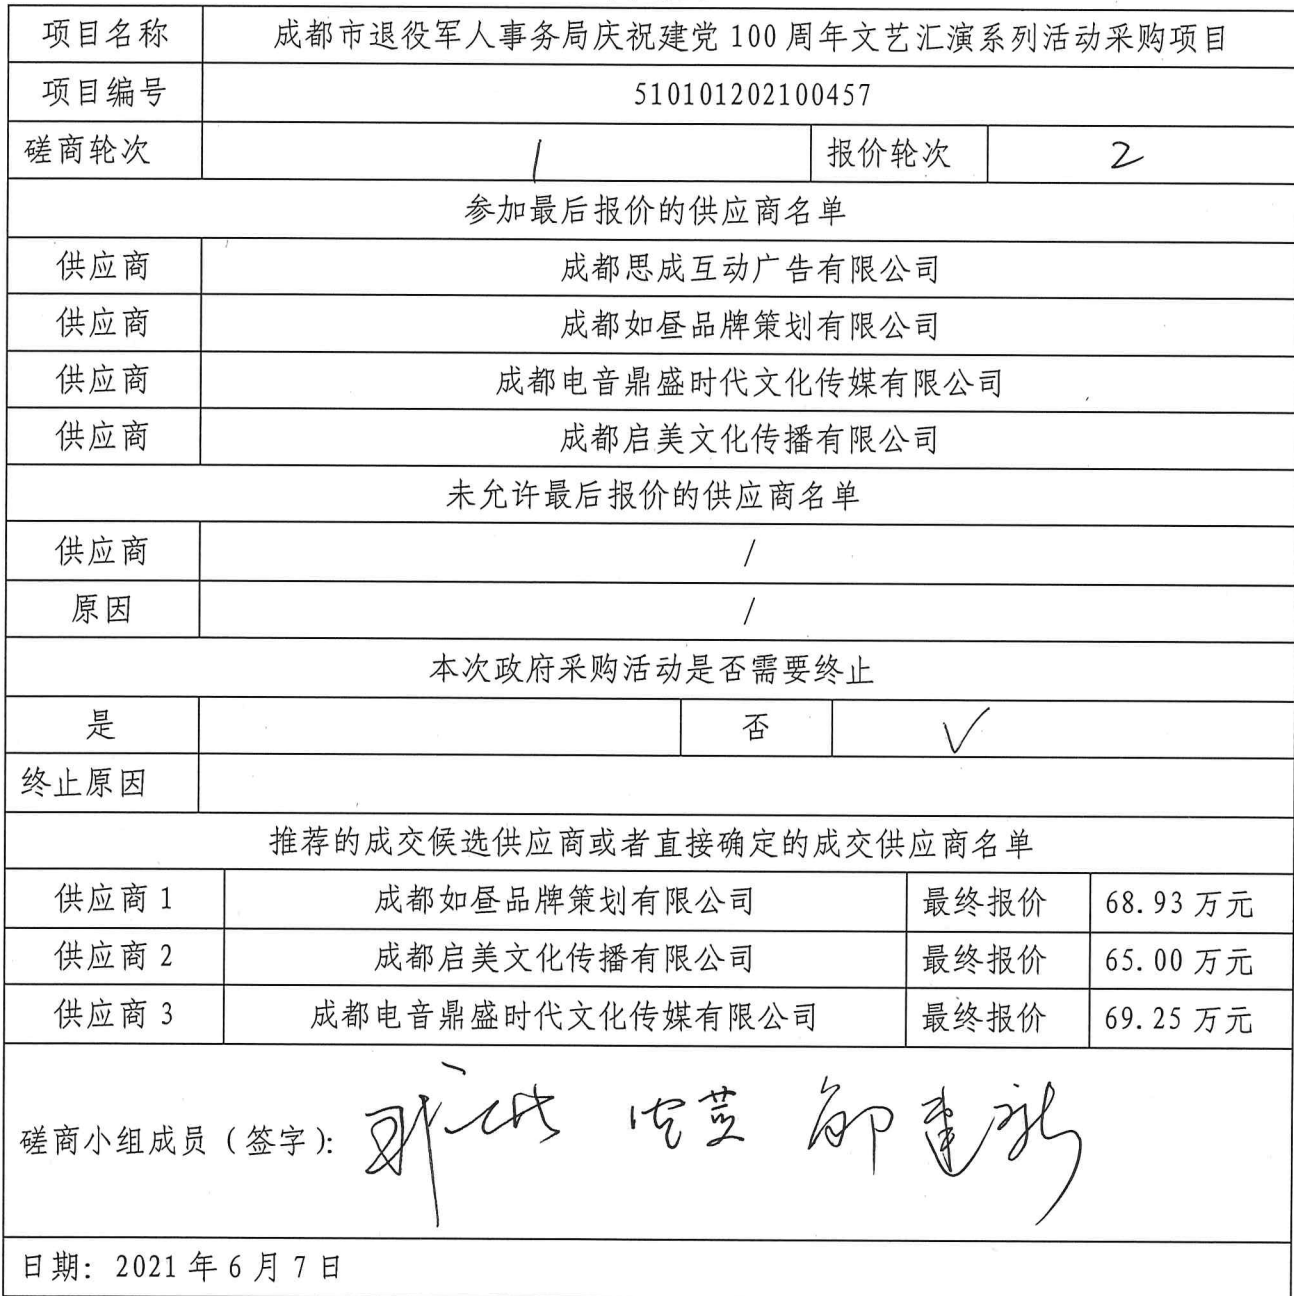 项目名称 成都市退役军人事务局庆祝建党 100 周年文艺汇演系列活动采购项目
项目编号 510101202100457
磋商轮次 1 报价轮次 2
参加最后报价的供应商名单
供应商 成都思成互动广告有限公司
供应商 成都如昼品牌策划有限公司
供应商 成都电音鼎盛时代文化传媒有限公司
供应商 成都启美文化传播有限公司
未允许最后报价的供应商名单
供应商 /
原因 /
本次政府采购活动是否需要终止
是 否 √
终止原因
推荐的成交候选供应商或者直接确定的成交供应商名单
供应商 1 成都如昼品牌策划有限公司 最终报价 68.93 万元
供应商 2 成都启美文化传播有限公司 最终报价 65.00 万元
供应商 3 成都电音鼎盛时代文化传媒有限公司 最终报价 69.25 万元
磋商小组成员（签字）：
日期：2021 年 6 月 7 日